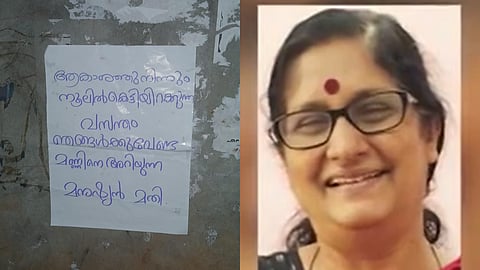 ആകാശത്തുനിന്നും
നൂലിൽകെട്ടിയിറക്കുന്ന
വസന്തം
ഞങ്ങൾക്കുവേണ്ട
മണ്ണിനെ അറിയുന്ന
മനുഷ്യൻ മതി